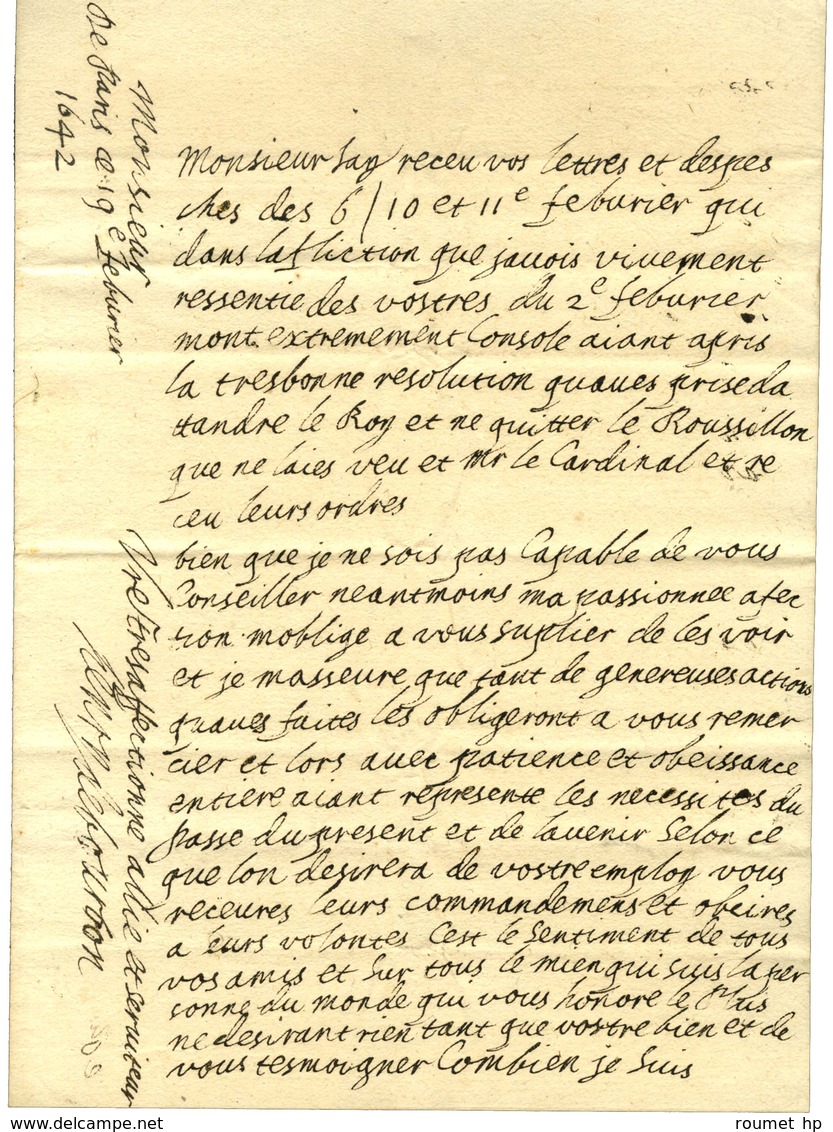 Monsieur Jay receu vos lettres et despes
ches des 6/10 et 11e feburier qui
dans lafliction que javois vivement
ressentie des vostres du 2e feburier
mont extremement Console aiant apris
la tresbonne resolution quaves prise da
ttandre le Roy et ne quitter le Roussillon
que ne laies veu et Mr le Cardinal et re
ceu leurs ordres
bien que je ne sois pas Capable de vous
Conseiller neantmoins ma passionnee afec
tion moblige a vous suplier de les voir
et je masseure que tant de genereuses actions
quaves faites les obligeront a vous remer
cier et lors avec patience et obeissance
entiere aiant represente les necessites du
passe du present et de lavenir Selon ce
que lon desirera de vostre employ vous
receures leurs commandemens et obeires
a leurs volontes Cest le Sentiment de tous
vos amis et Sur tous le mien qui suis la per
sonne du monde qui vous honore le Plus
ne desirant rien tant que vostre bien et de
vous tesmoigner Combien je Suis
Monsieur
De Paris ce 19e feburier
1642
Vre tresaffectionne allie et serviteur
roumet hp